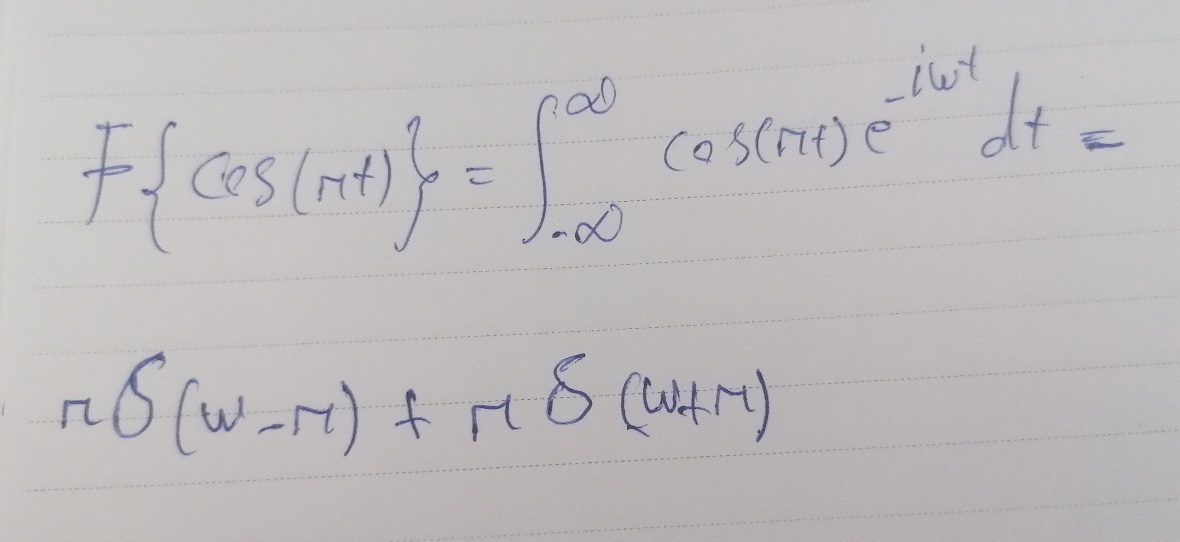 F{cos(πt)} = ∫_{-∞}^{∞} cos(πt) e^{-iωt} dt =
πδ(ω-π) + πδ(ω+π)